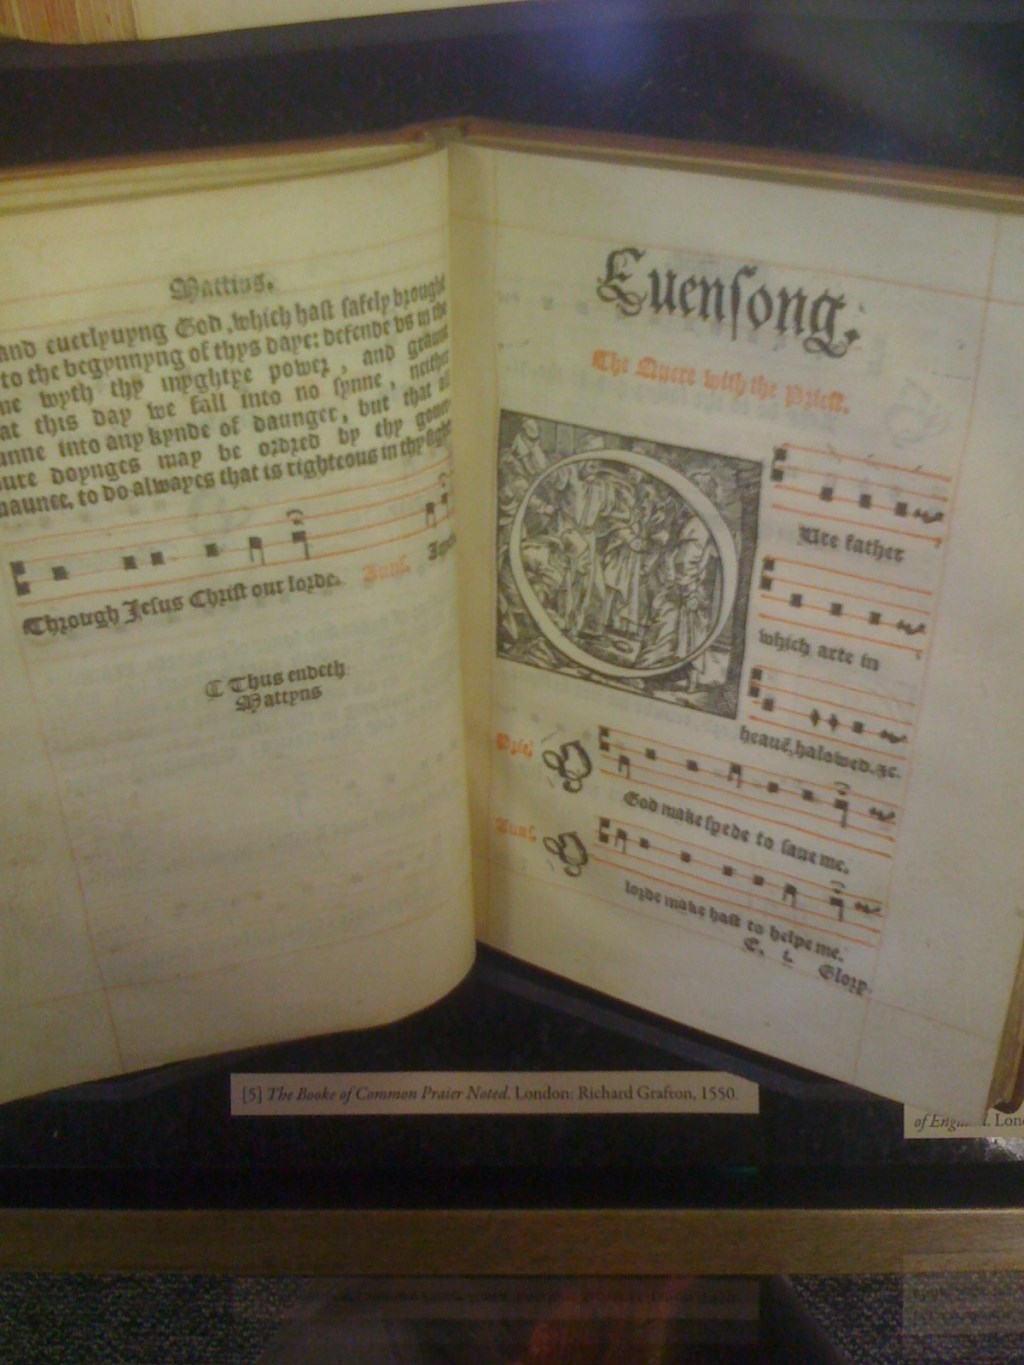 Mattins.
and euerlyuyng God, which hast safely brought
to the begynnyng of thys daye: defende vs in the
me wyth thy myghtye power, and graunt
at this day we fall into no synne, neither
unne into any kynde of daunger, but that all
ure doynges may be ordred by thy gouer
naunce, to do alwayes that is righteous in thy sight
Through Jesus Christ our lorde. Auns.
¶ Thus endeth
Mattyns
Euensong.
The Quere with the Priest.
O
Ure father
which arte in
heauē, halowed. ⁊c.
Prie.
O
God make spede to saue me.
Auns.
O
lorde make hast to helpe me.
E. i. Glory.
[5] The Booke of Common Praier Noted. London: Richard Grafton, 1550.